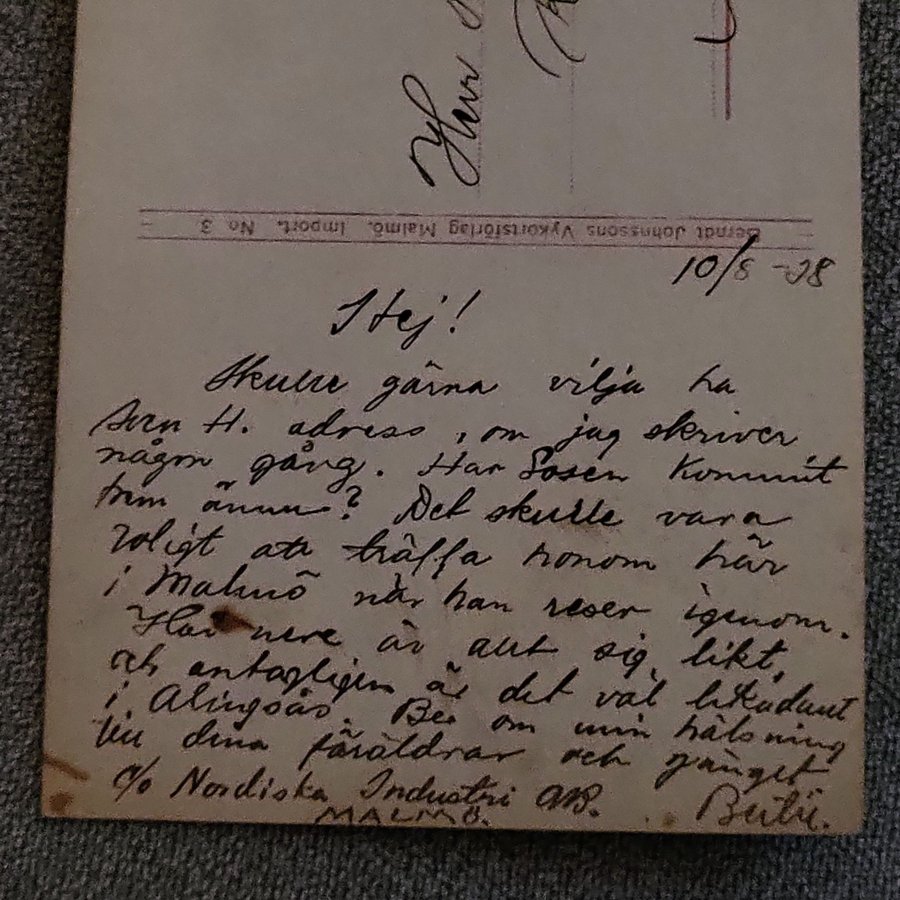 Herr
Berndt Johnssons Vykortsförlag Malmö. Import. No 3
10/8 -28
Hej!
Skulle gärna vilja ha
Sven H. adress, om jag skriver
någon gång. Har Sosen kommit
hem ännu? Det skulle vara
roligt att träffa honom här
i Malmö när han reser igenom.
Här nere är allt sig likt,
och antagligen är det väl likadant
i Alingsås. Be om min hälsning
till dina föräldrar och gänget
c/o Nordiska Industri AB.
MALMÖ.